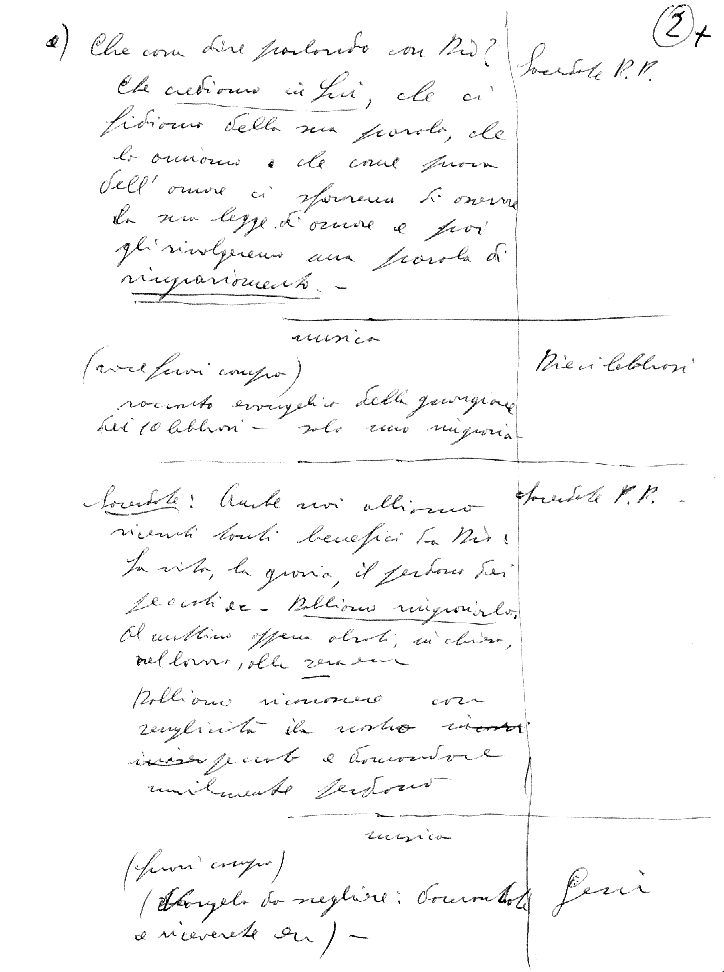 2+
e) Che cosa dire parlando con Dio?
Sacerdote P.P.
Che crediamo in Lui, che ci
fidiamo della sua parola, che
lo amiamo e che come prova
dell'amore ci sforzeremo di osservare
la sua legge di amore e poi
gli rivolgeremo una parola di
ringraziamento. -
musica
(voce fuori campo)
Dieci lebbrosi
racconto evangelico della guarigione
dei 10 lebbrosi - solo uno ringrazia
Sacerdote: Anche noi abbiamo
Sacerdote P.P. -
ricevuti tanti benefici da Dio:
La vita, la grazia, il perdono dei
peccati ec - Dobbiamo ringraziarlo.
Al mattino appena alzati, in chiesa,
nel lavoro, alla sera ecc
Dobbiamo riconoscere con
semplicità il nostro
peccato e domandare
umilmente perdono
musica
(fuori campo)
(Vangelo da scegliere: domandate
Gesù
e riceverete ecc) -